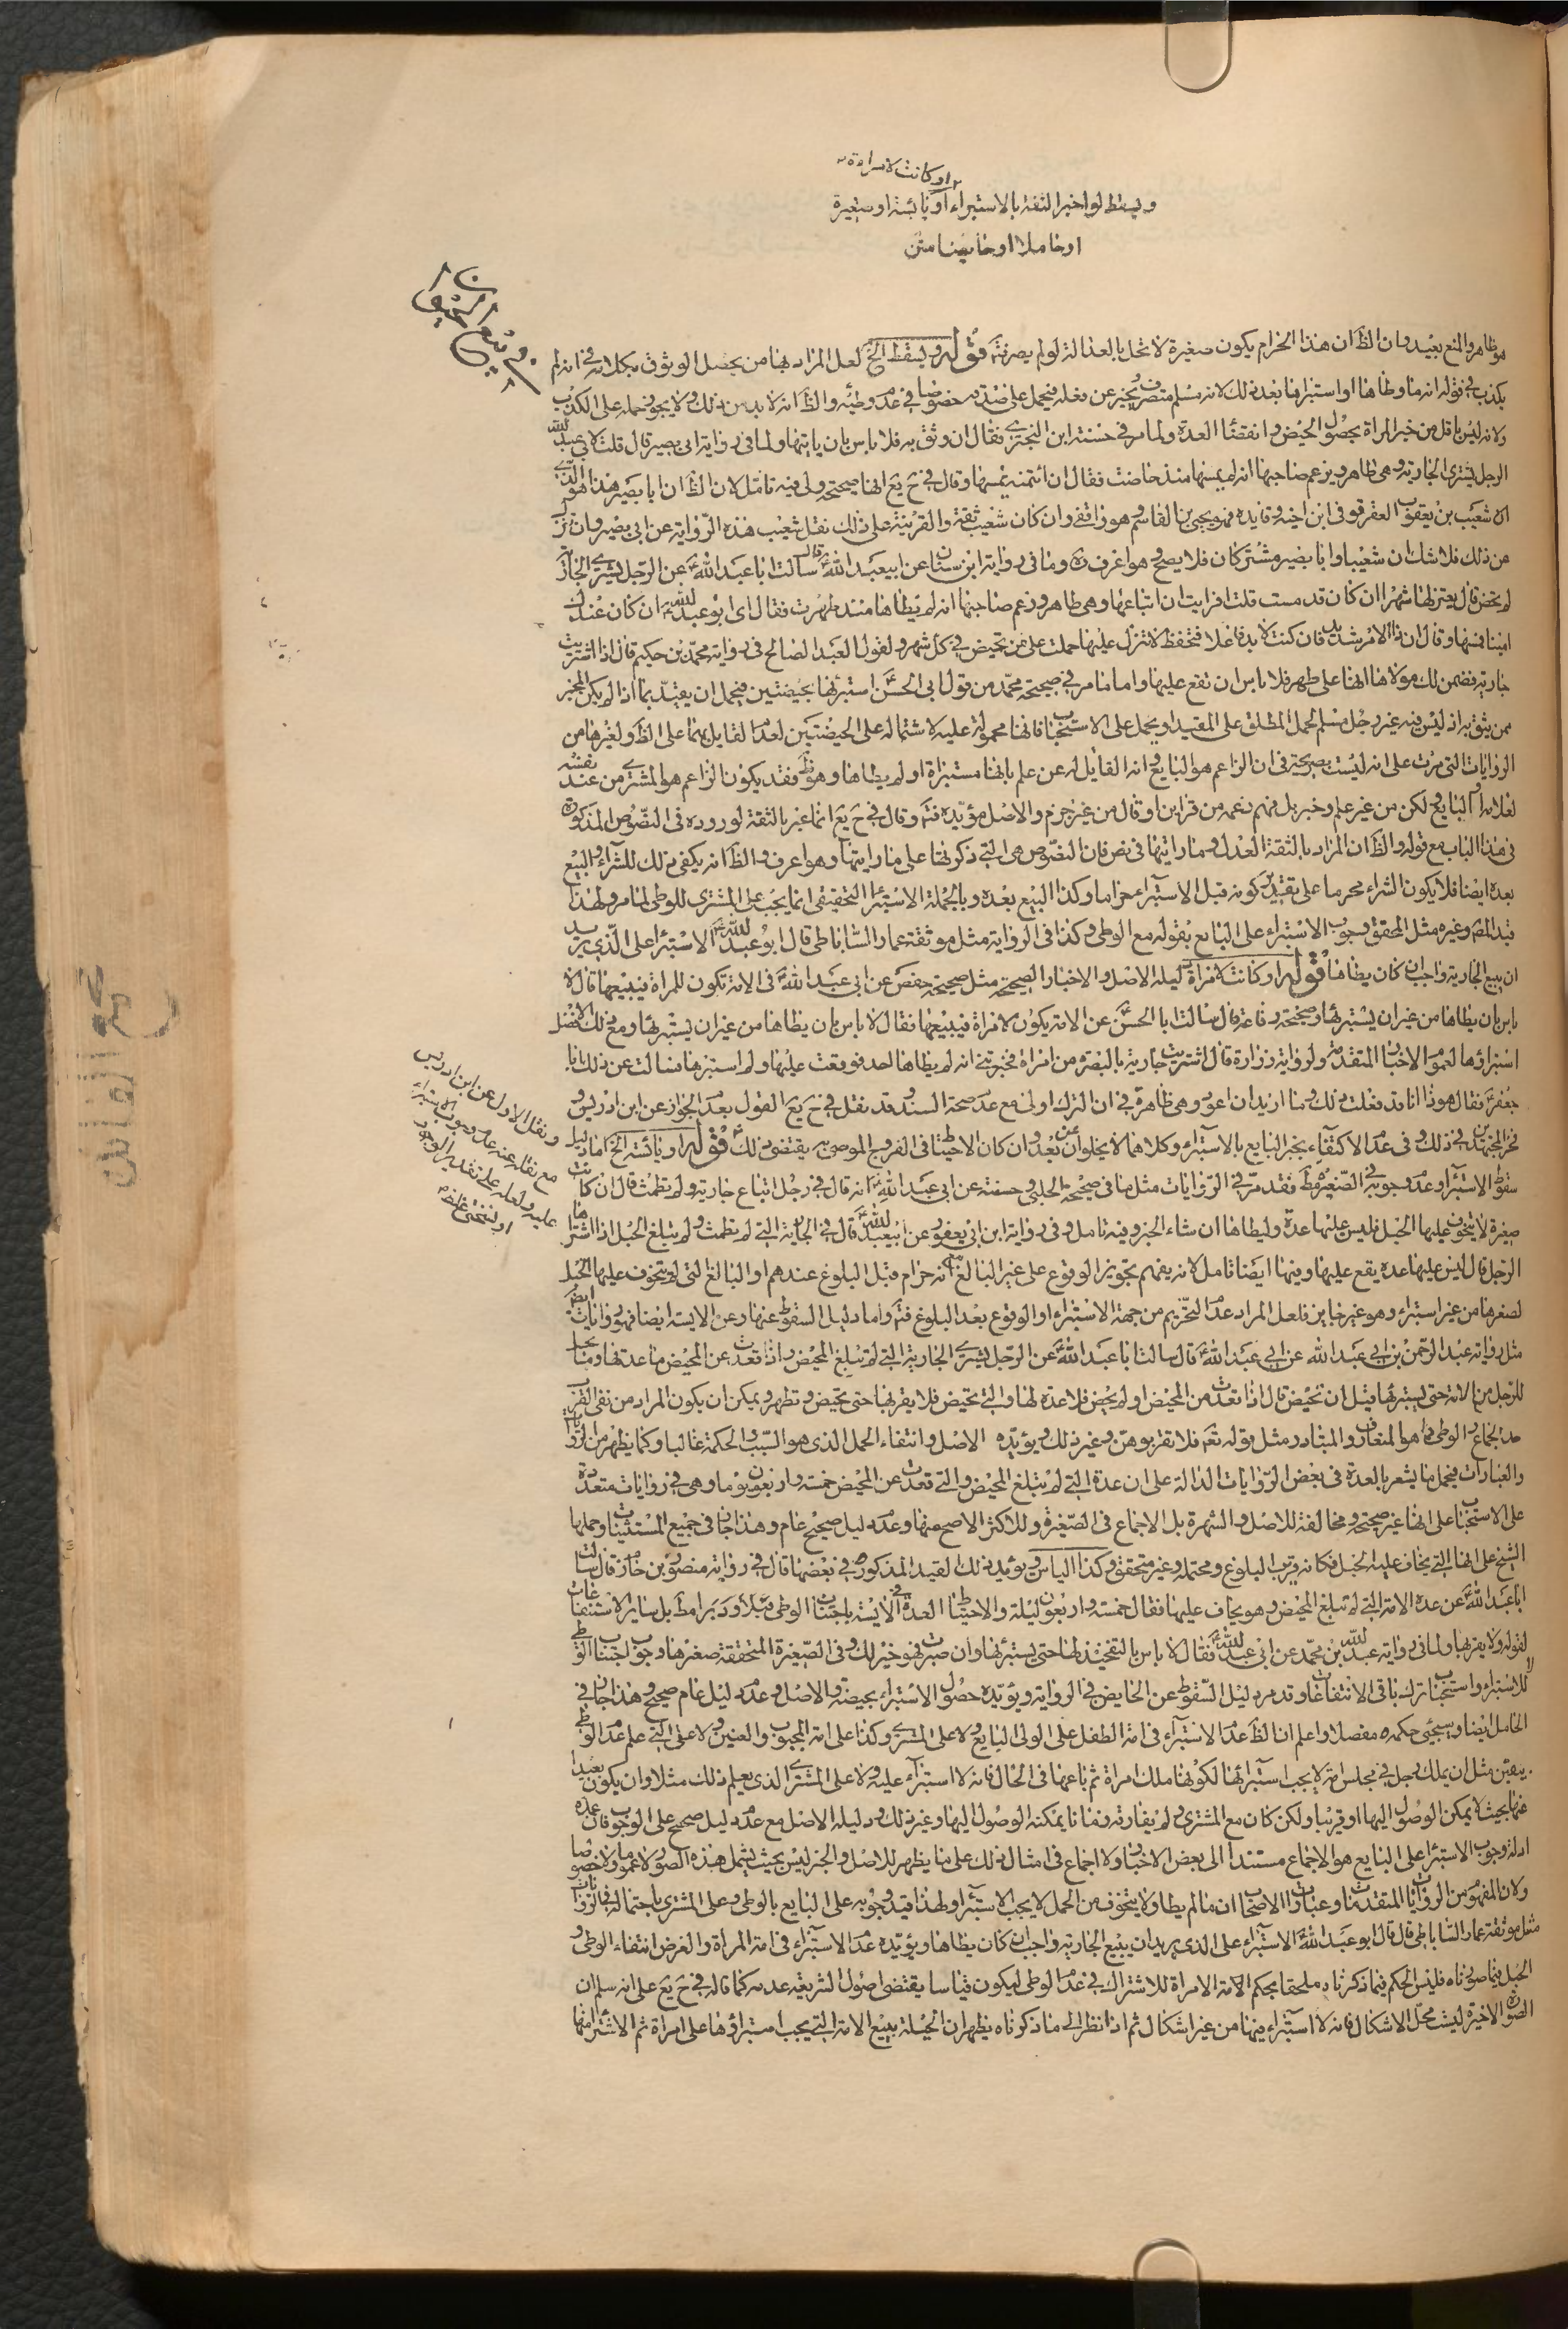 او كانت لامراة
ويسقط لو اخبر الثقة بالاستبراء او يائسة او صغيرة
او حاملا او حايضا متن
في بيع الحيوان
هو ظاهر والمنع بعيد وان الظ ان هذا الحرام يكون صغيرة لا تخل بالعدالة لو لم يصر فتم قوله ويسقط الخ لعل المراد بهنا من يحصل الوثوق بكلامه في انه لم
يكذب في قوله انه ما وطاها او استبراها بعد ذلك لانه مسلم متصرف يخبر عن فعله فيحمل على صدقه خصوصا في عدم وطئه والظ انه لابد من ذلك ولا يجوز حمله على الكذب
ولانه ليس باقل من خبر المراة بحصول الحيض وانقضاء العدة ولما مر في حسنة ابن البختري فقال ان وثق به فلا باس بان ياتيها ولما في رواية ابى بصير قال قلت لابي عبد الله
الرجل يشتري الجارية وهي طاهر ويزعم صاحبها انه لم يمسها منذ حاضت فقال ان ائتمنه يمسها وقال في ح يع انها صحيحة ولي فيه تامل لان الظ ان ابا بصير هذا هو الذي
اه شعيب بن يعقوب العقرقوفي ابن اخته وقايده فهو يحيى بن القاسم وهو واقفي وان كان شعيب ثقة والقرينة على ذلك نقل شعيب هذه الرواية عن ابي بصير وان نزل
عن ذلك فلا شك ان شعيبا وابا بصير مشترك ان فلا يصح وهو اعرف ره وما في رواية ابن سنان عن ابيعبد الله قال سالت ابا عبد الله عن الرجل يشتري الجارية
لم تحض قال يعتزلها شهرا ان كان قد مست قلت افرايت ان ابتاعها وهي طاهر وزعم صاحبها انه لم يطاها منذ طهرت فقال اى ابو عبد الله ان كان عندك
امينا فمسها وقال ان ذا الامر شديد فان كنت لابد فاعلا فتحفظ لا تنزل عليها حملت على من تحيض في كل شهر ولقول العبد الصالح في رواية محمد بن حكيم قال اذا اشتريت
جارية فضمن لك مولاها انها على طهر فلا باس ان تقع عليها واما ما مر في صحيحة محمد من قول ابي الحسن استبرئها بحيضتين فيحمل ان يعتد بما اذا لم يكن المخبر
ممن يثق به اذ ليس فيه غير رجل مسلم لحمل المطلق على المقيد او يحمل على الاستحباب فانها محمولة عليه لاشتماله على الحيضتين لعدم القايل بهما على الظ ولغيرها من
الروايات التى مرت على انه ليست بصريحة في ان الزاعم هو البايع وانه القايل له عن علم بانها مستبراة او لم يطاها وهو ظ فقد يكون الزاعم هو المشتري من عند نفسه
في هذا الباب مع قوله والظ ان المراد بالثقة العدل وما رايتها في نص فان النصوص هى التي ذكرتها على ما رايتها وهو اعرف والظ انه يكفي ذلك للشراء والبيع
بعده ايضا فلا يكون الشراء محرما على تقدير كونه قبل الاستبراء حراما وكذا البيع بعده وبالجملة الاستبراء التحقيقى انما يجب على المشتري للوطي لما مر ولهذا
قيد المص وغيره مثل المحقق وجوب الاستبراء على البايع بقوله مع الوطى وكذا في الرواية مثل موثقة عمار الساباطى قال ابو عبد الله الاستبراء على الذي يريد
ان يبيع الجارية واجب ان كان يطاها قوله او كانت لامراة دليله الاصل والاخبار الصحيحة مثل صحيحة حفص عن ابي عبد الله في الامة تكون للمراة فيبيعها قال لا
باس بان يطاها من غير ان يستبرئها وصحيحة رفاعة قال سالت ابا الحسن عن الامة يكون لامراة فيبيعها فقال لا باس بان يطاها من غير ان يستبرئها ومع ذلك الافضل
استبراؤها لعموم الاخبار المتقدمة ولرواية زرارة قال اشتريت جارية بالبصرة من امراة فخبرتني انه لم يطاها احد فوقعت عليها ولم استبرها فسالت عن ذلك ابا
جعفر فقال هوذا انا قد فعلت ذلك وما اريد ان اعود وهى ظاهرة في ان الترك اولى مع عدم صحة السند وقد نقل في ح يع القول بعدم الجواز عن ابن ادريس و
فخر المجتهدين في ذلك وفى عدم الاكتفاء بخبر البايع بالاستبراء وكلاهما لا يخلوان عن بعد وان كان الاحتياط في الفروج الموصى به يقتضى ذلك قوله او يائسة الخ اما دليل
سقوط الاستبراء وعدم وجوبه في الصغيرة فظ فقد مر في الروايات مثل ما في صحيحة الحلبي وحسنته عن ابي عبد الله انه قال في رجل ابتاع جارية ولم تطمث قال ان كانت
صغيرة لا يتخوف عليها الحبل فليس عليها عدة وليطاها ان شاء الخبر وفيه تامل وفي رواية ابن ابي يعفور عن ابيعبد الله قال في الجارية التي لم تطمث ولم تبلغ الحبل اذا اشتراها
الرجل قال ليس عليها عدة يقع عليها وفيها ايضا تامل لانه يفهم تجويز الوقوع على غير البالغ مع انه حرام قبل البلوغ عندهم او البالغ التى لم يتخوف عليها الحبل
لصغرها من غير استبراء وهو غير جايز فلعل المراد عدم التحريم من جهة الاستبراء او الوقوع بعد البلوغ فتم واما دليل السقوط عنها وعن الايسة ايضا فهو روايات ايضا
مثل رواية عبد الرحمن بن ابي عبد الله عن ابي عبد الله قال سالت ابا عبد الله عن الرجل يشتري الجارية التي لم تبلغ المحيض واذا قعدت عن المحيض ما عدتها وما يحل
للرجل من الامة حتى يستبرئها قبل ان تحيض قال اذا قعدت من المحيض او لم يحض فلا عدة لها والتي تحيض فلا يقربها حتى تحيض وتطهر ويمكن ان يكون المراد من نفى القرب
عدم الجماع والوطى كما هو المتعارف والمتبادر مثل قوله تعم فلا تقربوهن وغير ذلك ويؤيده الاصل وانتفاء الحمل الذى هو السبب والحكمة غالبا وكما يظهر من الروايات
والعبارات فيحمل ما يشعر بالعدة في بعض الروايات الدالة على ان عدة التي لم تبلغ المحيض والتي قعدت عن المحيض خمسة واربعون يوما وهى في روايات متعددة
على الاستحباب على انها غير صحيحة ومخالفة للاصل والشهرة بل الاجماع في الصغيرة وللاكثر الاصح منها وعدم دليل صحيح عام وهذا جار في جميع المستثنيات وحملها
الشيخ على انها التي يخاف عليها الحبل فكانه قرب البلوغ ومحتملة وغير متحقق وكذا الياس ويؤيد ذلك القيد المذكور في بعضها قال في رواية منصور بن حازم قال سالت
ابا عبد الله عن عدة الامة التي لم تبلغ المحيض وهو يخاف عليها فقال خمسة واربعون ليلة والاحتياط العدة في الايسة باجتناب الوطى قبلا ودبرا مط بل ساير الاستمتاعات
لقوله ولا يقربها ولما في رواية عبد الله بن محمد عن ابي عبد الله فقال لا باس بالتفخيذ لها حتى يستبرئها وان صبرت فهو خير لك وفى الصغيرة المتحققة صغرها وجوب اجتناب الوطي
للاستبراء واستحباب ترك باقى الانتفاعات وقد مر دليل السقوط عن الحايض في الرواية ويؤيده حصول الاستبراء بحيضة والاصل وعدم دليل عام صحيح وهذا جار في
الحامل ايضا وسيجئ حكمه مفصلا واعلم ان الظ عدم الاستبراء في امة الطفل على الولى البايع ولا على المشتري وكذا على امة المجبوب والعنين ولا على التي علم عدم الوطي
بيقين مثل ان يملك رجل في مجلس امة لا يجب استبرائها لكونها ملك امراة ثم باعها في الحال فانه لا استبراء عليه ولا على المشتري الذى يعلم ذلك مثلا وان يكون بعيدا
عنها بحيث لا يمكن الوصول اليها او قريبا ولكن كان مع المشتري ولم يفارقه زمانا يمكنه الوصول اليها وغير ذلك ودليله الاصل مع عدم دليل صحيح على الوجوب فان عمدة
ادلة وجوب الاستبراء على البايع هو الاجماع مستندا الى بعض الاخبار ولا اجماع في امثال ذلك على ما يظهر للاصل والخبر ليس بحيث يشمل هذه الصور لا عموما ولا خصوصا
ولان المفهوم من الروايات المتقدمة وعبارات الاصحاب ان ما لم يطا ولا يتخوف من الحمل لا يجب الاستبراء ولهذا قيد وجوبه على البايع بالوطى وعلى المشتري باحتماله في الروايات
مثل موثقة عمار الساباطى قال قال ابو عبد الله الاستبراء على الذى يريد ان يبيع الجارية واجب ان كان يطاها ويؤيده عدم الاستبراء في امة المراة والغرض انتفاء الوطى و
الحبل فيما صورناه فليس الحكم فيما ذكرناه ملحقا بحكم الامة الامراة للاشتراك في عدم الوطى ليكون قياسا يقتضى اصول الشريعة عدمه كما قاله في ح يع على انه سلم ان
الصورة الاخيرة ليست محل الاشكال فانه لا استبراء فيها من غير اشكال ثم اذا نظر الى ما ذكرناه يظهر ان الحيلة ببيع الامة التي يجب استبراؤها على امراة ثم الاشتراء منها
ونقل الاول عن ابن ادريس
مع نقله عنه عدم وجوب الاستبراء
عليه ولعله على تقدير الوجود